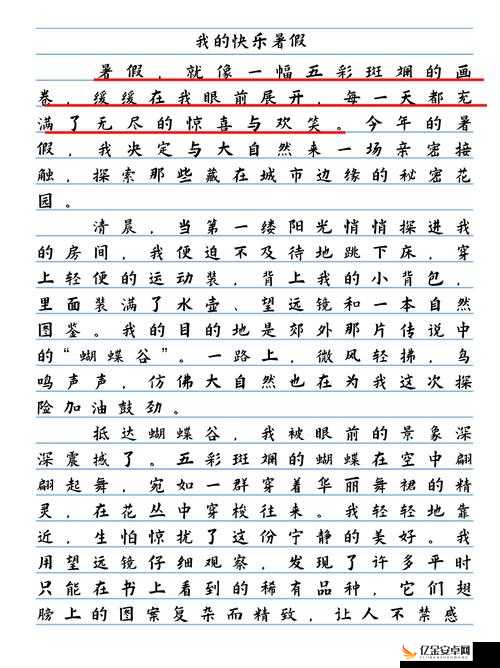 我的快乐暑假
暑假，就像一幅五彩斑斓的画
卷，缓缓在我眼前展开，每一天都充
满了无尽的惊喜与欢笑。今年的暑
假，我决定与大自然来一场亲密接
触，探索那些藏在城市边缘的秘密花
园。
清晨，当第一缕阳光悄悄探进我
的房间，我便迫不及待地跳下床，穿
上轻便的运动装，背上我的小背包，
里面装满了水壶、望远镜和一本自然
图鉴。我的目的地是郊外那片传说中
的“蝴蝶谷”。一路上，微风轻拂，鸟
鸣声声，仿佛大自然也在为我这次探
险加油鼓劲。
抵达蝴蝶谷，我被眼前的景象深
深震撼了。五彩斑斓的蝴蝶在空中翩
翩起舞，宛如一群穿着华丽舞裙的精
灵，在花丛中穿梭往来。我轻轻地靠
近，生怕惊扰了这份宁静的美好。我
用望远镜仔细观察，发现了许多平时
只能在书上看到的稀有品种，它们翅
膀上的图案复杂而精致，让人不禁感
亿金安卓网